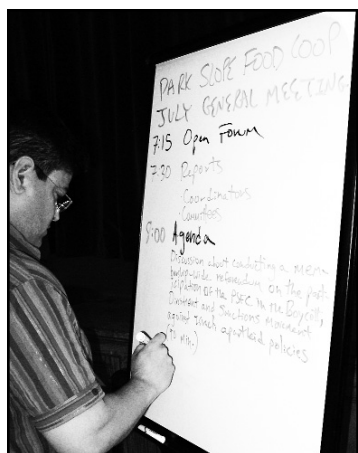 PARK SLOPE FOOD COOP
JULY GENERAL MEETING
7:15 Open Forum
7:30 Reports
Coordinators
Committees
8:00 Agenda
Discussion about conducting a mem-
bership-wide referendum on the parti-
cipation of the PSFC in the Boycott,
Divestment and Sanctions Movement
against Israeli apartheid policies
min.)